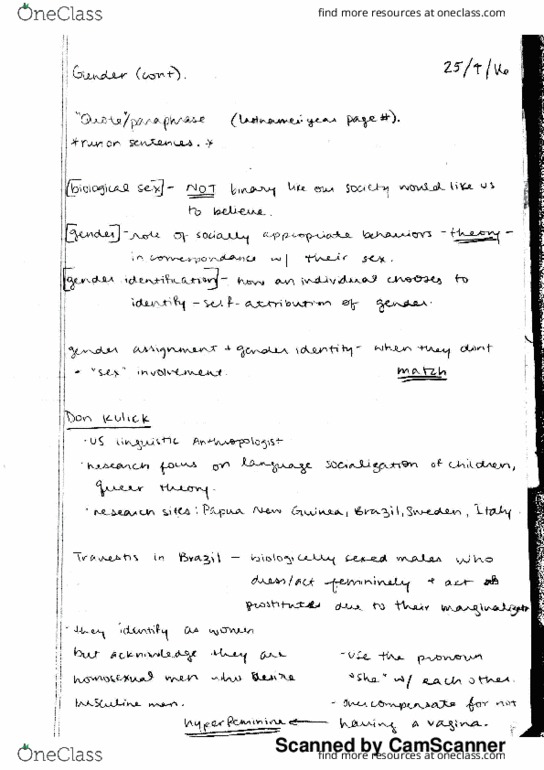 OneClass
find more resources at oneclass.com
Gender (cont).
25/4/16
"Quote"/paraphrase (lastname: year page #).
*run on sentences. *
[biological sex] - NOT binary like our society would like us
to believe.
[gender] - role of socially appropriate behaviors - theory -
in correspondance w/ their sex.
[gender identification] - how an individual chooses to
identify - self-attribution of gender.
gender assignment + gender identity - when they dont
• "sex" involvement. match
Don Kulick
• US linguistic Anthropologist
• research focus on language socialization of children,
queer theory.
• research sites: Papua New Guinea, Brazil, Sweden, Italy.
Travestis in Brazil - biologically sexed males who
dress/act femininely + act as
prostitutes due to their
• they identify as women
but acknowledge they are
homosexual men who desire
masculine men.
- use the pronoun
"she" w/ each other.
- overcompensate for not
hyperfeminine ← having a vagina.
Scanned by CamScanner
OneClass
find more resources at oneclass.com